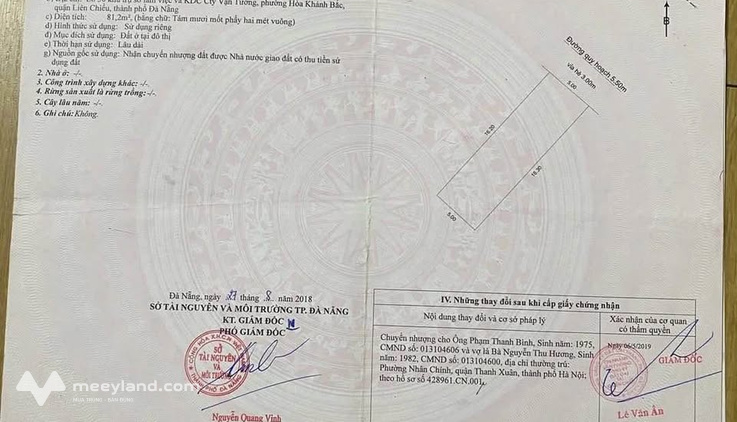 quận Liên Chiểu, thành phố Đà Nẵng
c) Diện tích: 81,2m², (bằng chữ: Tám mươi mốt phẩy hai mét vuông)
d) Hình thức sử dụng: Sử dụng riêng
đ) Mục đích sử dụng: Đất ở tại đô thị
e) Thời hạn sử dụng: Lâu dài
g) Nguồn gốc sử dụng: Nhận chuyển nhượng đất được Nhà nước giao đất có thu tiền sử
dụng đất
2. Nhà ở: -/-
3. Công trình xây dựng khác: -/-
4. Rừng sản xuất là rừng trồng: -/-
5. Cây lâu năm: -/-
6. Ghi chú: Không.
B
Đường quy hoạch 5.50m
vỉa hè 3.00m
5.00
16.20
16.30
5.00
Đà Nẵng, ngày 27 tháng 8 năm 2018
SỞ TÀI NGUYÊN VÀ MÔI TRƯỜNG TP. ĐÀ NẴNG
KT. GIÁM ĐỐC
PHÓ GIÁM ĐỐC
SỞ
TÀI NGUYÊN
VÀ
MÔI TRƯỜNG
Nguyễn Quang Vinh
IV. Những thay đổi sau khi cấp giấy chứng nhận
Nội dung thay đổi và cơ sở pháp lý
Xác nhận của cơ quan
có thẩm quyền
Chuyển nhượng cho Ông Phạm Thanh Bình, Sinh năm: 1975,
CMND số: 013104606 và vợ là Bà Nguyễn Thu Hương, Sinh
năm: 1982, CMND số: 013104600, địa chỉ thường trú:
Phường Nhân Chính, quận Thanh Xuân, thành phố Hà Nội;
theo hồ sơ số 428961.CN.001
Ngày 06/5/2019
GIÁM ĐỐC
Lê Văn Ân
meeyland.com